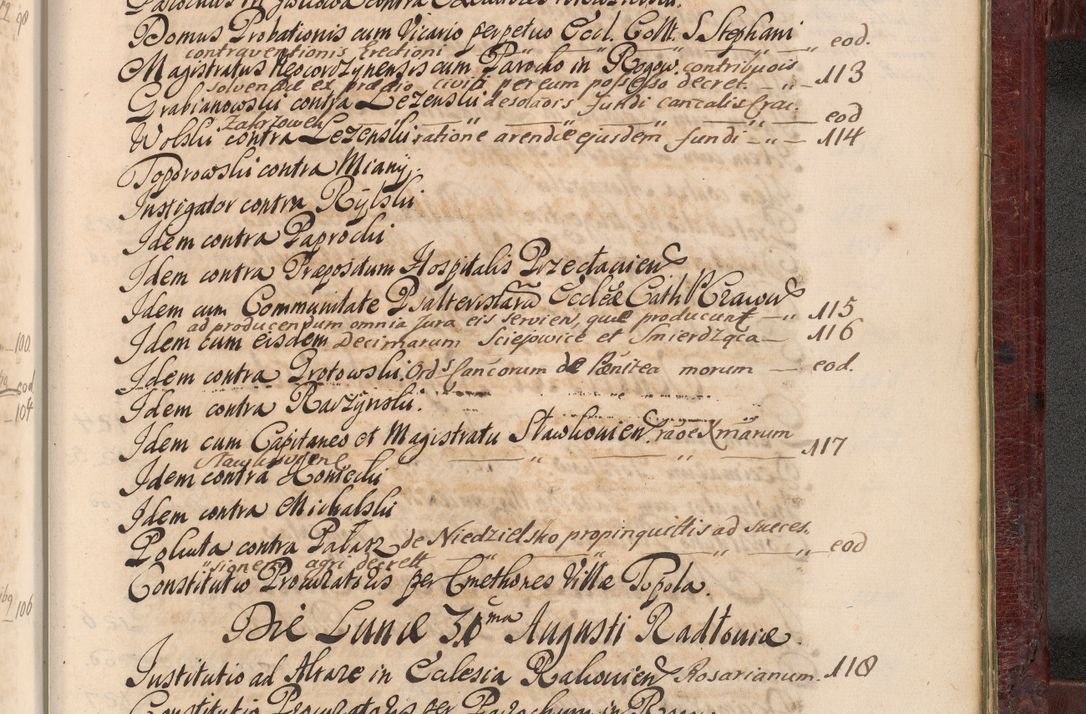 Domus Probationis cum Vicario perpetuo Eccl. Coll. S. Stephani
contraventionis Erectioni — „ — „ — „ — eod.
Magistratus Neocorzynensis cum Parocho in Rogow. contribuois
solvendæ ex prædio civili per eum possesso decret. — „ — 113
Grabianowski contra Lezenski desolaois fundi cancalis frac.
Zakrzowek — „ — „ — „ — eod
Wolski contra Lezenski ratione arendæ ejusdem fundi — „ — 114
Toporowski contra Mianÿ
Instigator contra Rÿlski
Idem contra Paprocki
Idem contra Præpositum Hospitalis Przectavien
Idem cum Communitate Psalteristarū Ecclæ Cath. Cracov
ad producendum omnia jura eis servien, quæ producunt — „ 115
Idem cum eisdem Decimarum Sciejowice et Smierdząca — 116
Idem contra Protowski. Ords sancorum de Pænitea morum — eod.
Idem contra Raczÿnski.
Idem cum Capitaneo et Magistratu Slawkovien, raōe Xmārum
Slawkoviene — „ — „ — 117
Idem contra Koniecki
Idem contra Michalski
Poliuta contra Palarz de Niedzielsko propinquittis ad succes.
„sionem agri decrett — „ — „ — „ eod
Constitutio Procuratoris per Cmethones Villæ Topola.
Die Lunæ 30ma Augusti Radłoviæ.
Institutio ad Altare in Ecclesia Rakovien Rosarianum. 118
Constitutio Procuratoris per Parochum in
100.
eod
104
106